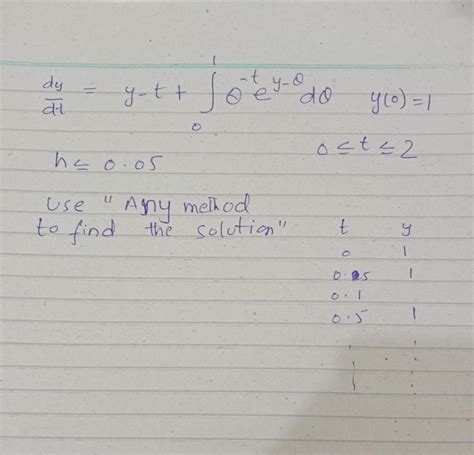 dy/dt = y-t + ∫₀¹ θ^-t e^y-θ dθ y(0)=1
h ≤ 0.05 0 ≤ t ≤ 2
Use "Any method
to find the solution" t y
0 1
0.05 1
0.1
0.5 1